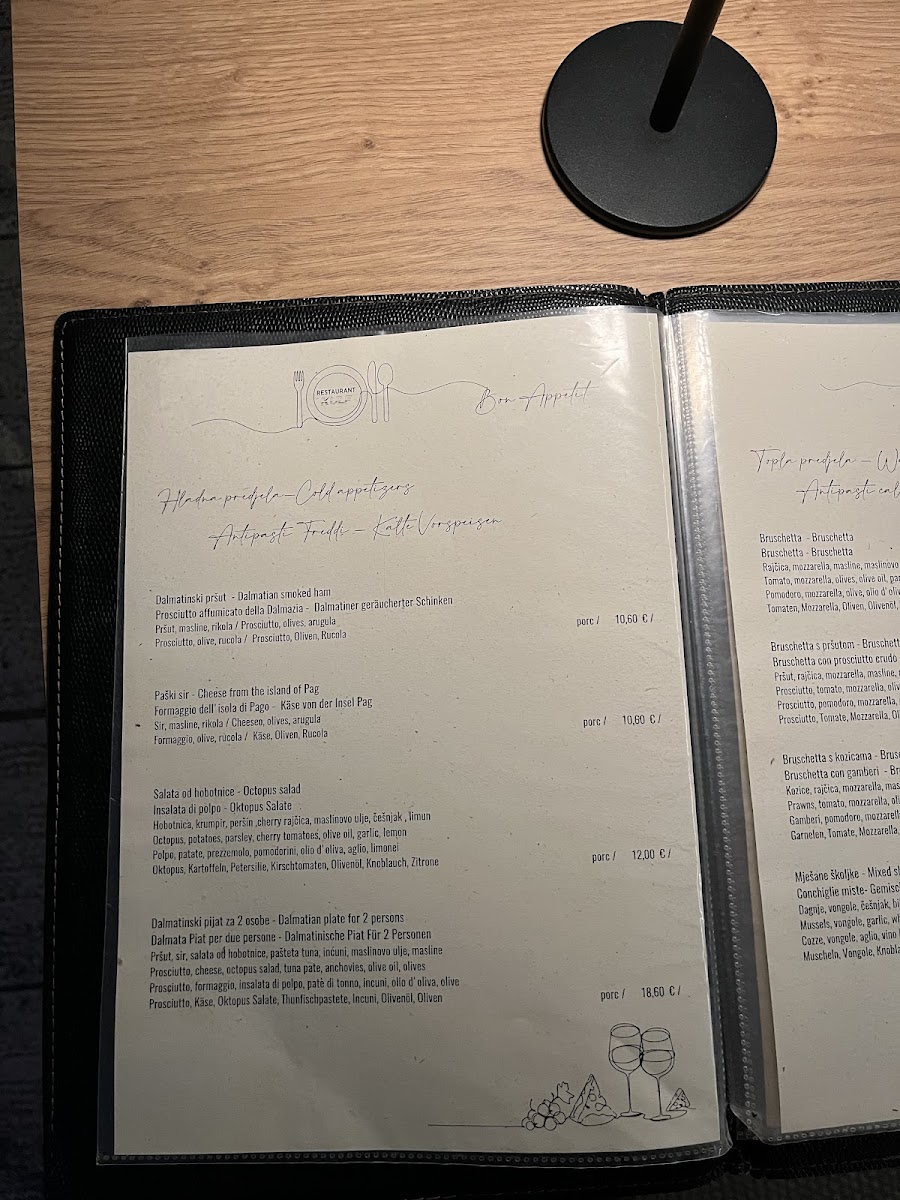 RESTAURANT
Bon Appetit
Hladna predjela – Cold appetizers
Antipasti Freddi – Kalte Vorspeisen
Dalmatinski pršut - Dalmatian smoked ham
Prosciutto affumicato della Dalmazia - Dalmatiner geräucherter Schinken
Pršut, masline, rikola / Prosciutto, olives, arugula
Prosciutto, olive, rucola / Prosciutto, Oliven, Rucola
porc / 10,60 € /
Paški sir - Cheese from the island of Pag
Formaggio dell' isola di Pago - Käse von der Insel Pag
Sir, masline, rikola / Cheeseo, olives, arugula
Formaggio, olive, rucola / Käse, Oliven, Rucola
porc / 10,60 € /
Salata od hobotnice - Octopus salad
Insalata di polpo - Oktopus Salate
Hobotnica, krumpir, peršin ,cherry rajčica, maslinovo ulje, češnjak , limun
Octopus, potatoes, parsley, cherry tomatoes, olive oil, garlic, lemon
Polpo, patate, prezzemolo, pomodorini, olio d' oliva, aglio, limonei
Oktopus, Kartoffeln, Petersilie, Kirschtomaten, Olivenöl, Knoblauch, Zitrone
porc / 12,00 € /
Dalmatinski pijat za 2 osobe - Dalmatian plate for 2 persons
Dalmata Piat per due persone - Dalmatinische Piat Für 2 Personen
Pršut, sir, salata od hobotnice, pašteta tuna, inćuni, maslinovo ulje, masline
Prosciutto, cheese, octopus salad, tuna pate, anchovies, olive oil, olives
Prosciutto, formaggio, insalata di polpo, patè di tonno, incuni, olio d' oliva, olive
Prosciutto, Käse, Oktopus Salate, Thunfischpastete, Incuni, Olivenöl, Oliven
porc / 18,60 € /
Topla predjela –
Antipasti
Bruschetta - Bruschetta
Bruschetta - Bruschetta
Rajčica, mozzarella, masline, maslinovo
Tomato, mozzarella, olives, olive oil,
Pomodoro, mozzarella, olive, olio d'
Tomaten, Mozzarella, Oliven, Olivenöl,
Bruschetta s pršutom -
Bruschetta con prosciutto crudo
Pršut, rajčica, mozzarella, masline,
Prosciutto, tomato, mozzarella,
Prosciutto, pomodoro, mozzarella,
Prosciutto, Tomate, Mozzarella,
Bruschetta s kozicama -
Bruschetta con gamberi -
Kozice, rajčica, mozzarella,
Prawns, tomato, mozzarella,
Gamberi, pomodoro,
Garnelen, Tomate, Mozzarella,
Mješane školjke - Mixed
Conchiglie miste-
Dagnje, vongole, češnjak,
Mussels, vongole, garlic,
Cozze, vongole, aglio, vino
Muscheln, Vongole,